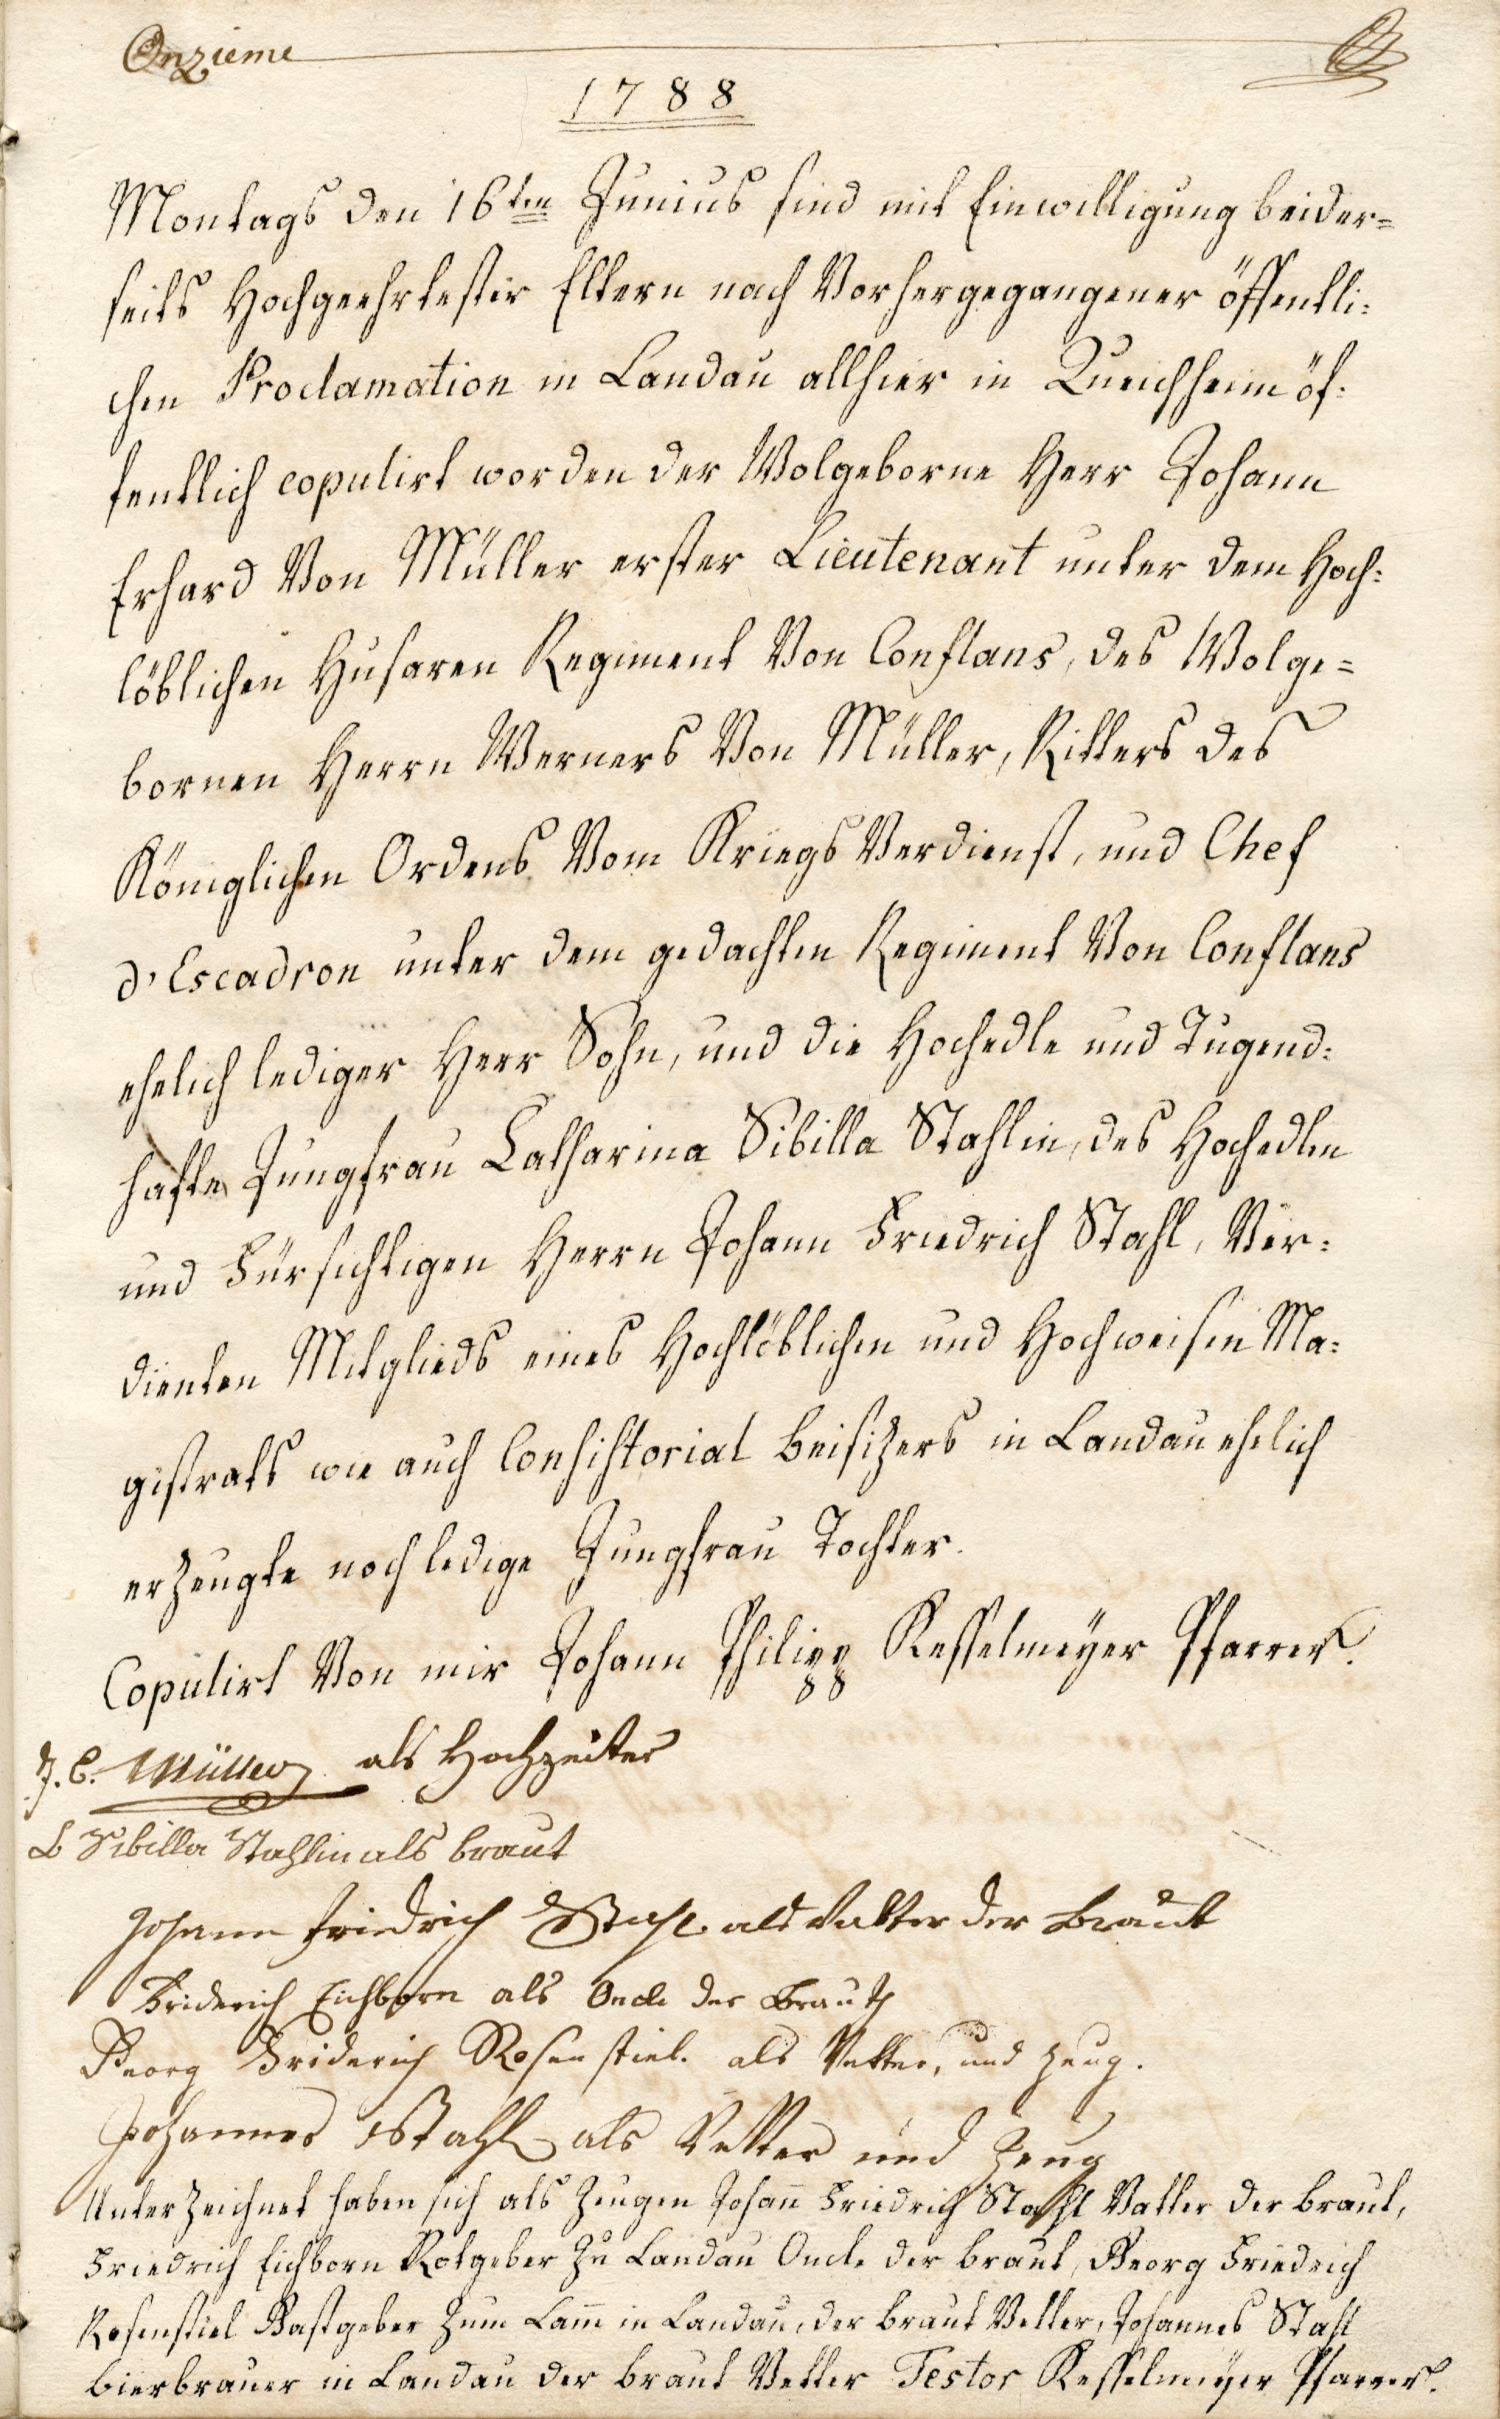 Onzieme
1788
Montags den 16ten Junius sind mit Einwilligung beider=
seits Hochgeehrtester Eltern nach Vorhergegangener öffentli:
chen Proclamation in Landau allhier in Queichheim öf:
fentlich copulirt worden der Wolgeborne Herr Johann
Erhard Von Müller erster Lieutenant unter dem Hoch:
löblichen Husaren Regiment Von Conflans, des Wolge=
bornen Herrn Werners Von Müller, Ritters des
Königlichen Ordens Vom Kriegs Verdienst, und Chef
d'Escadron unter dem gedachten Regiment Von Conflans
ehelich lediger Herr Sohn, und die Hochedle und Tugend:
hafte Jungfrau Catharina Sibilla Stahlin, des Hochedlen
und Fürsichtigen Herrn Johann Friedrich Stahl, Ver:
dienten Mitglieds eines Hochlöblichen und Hochweisen Ma:
gistrats wie auch Consistorial Beisizers in Landau ehelich
erzeugte noch ledige Jungfrau Tochter.
Copulirt Von mir Johann Philipp Kesselmeyer Pfarrer.
J. E. Müller als Hochzeiter
C Sibilla Stahlin als braut
Johann Friedrich Stahl als Vatter der Braut
Friderich Eichborn als Oncle der Brauth
Georg Friderich Rosenstiel. als Vetter, und zeug.
Johannes Stahl als Vetter und Zeug
Unterzeichnet haben sich als Zeugen Johan̄ Friedrich Stahl Vatter der Braut,
Friedrich Eichborn Rotgeber zu Landau Oncle der Braut, Georg Friedrich
Rosenstiel Gastgeber zum Lam̄ in Landau, der Braut Vetter, Johannes Stahl
Bierbrauer in Landau der Braut Vetter Testor Kesselmeyer Pfarrer.